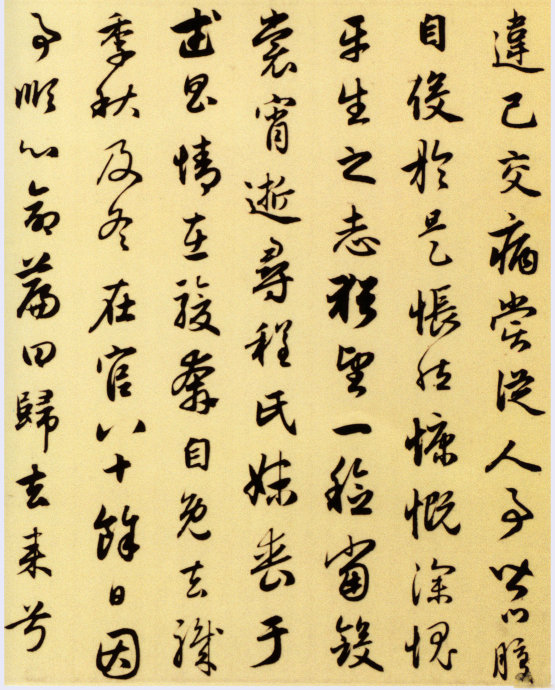 違己交病嘗從人事皆口腹
自役於是悵然慷慨深愧
平生之志猶望一稔當斂
裳宵逝尋程氏妹喪于
武昌情在駿奔自免去職
季秋及冬在官八十餘日因
事順心命篇曰歸去來兮